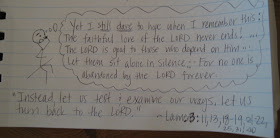 Yet I still dare to hope when I remember this:
The faithful love of the LORD never ends! ...
The LORD is good to those who depend on him ...
Let them sit alone in silence ... For no one is
abandoned by the LORD forever.
"Instead, let us test & examine our ways. Let us
turn back to the LORD"
- Lam. 3: